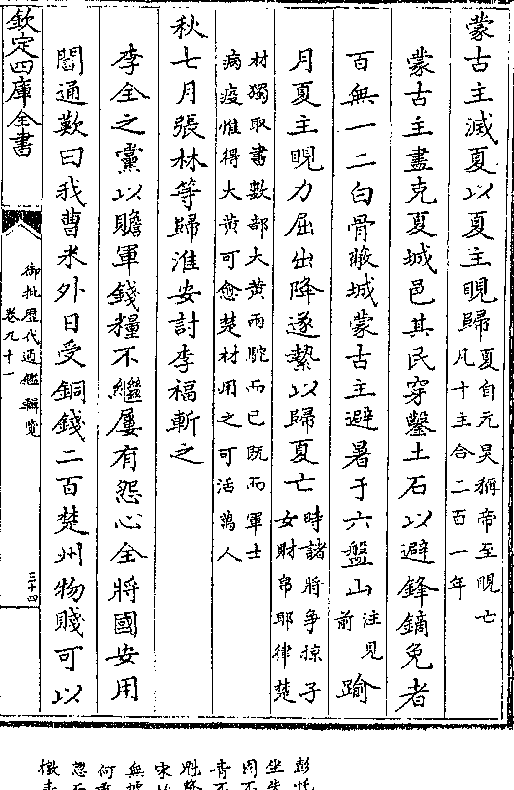 蒙古主滅夏以夏主晛歸夏自元昊稱帝至晛亡凡十主合二百一年
蒙古主盡克夏城邑其民穿鑿土石以避鋒鏑免者
百無一二白骨蔽城蒙古主避暑于六盤山注見前踰
月夏主晛力屈出降遂縶以歸夏亡時諸將爭掠子女財帛耶律楚
材獨取書數部大黄兩駝而已既而軍士病疫惟得大黄可愈楚材用之可活萬人
秋七月張林等歸淮安討李福斬之
李全之黨以贍軍錢糧不繼屢有怨心全將國安用
閻通歎曰我曹米外日受銅錢二百楚州物賤可以
欽定四庫全書
御批歷代通鑑輯覽
卷九十一
三十四